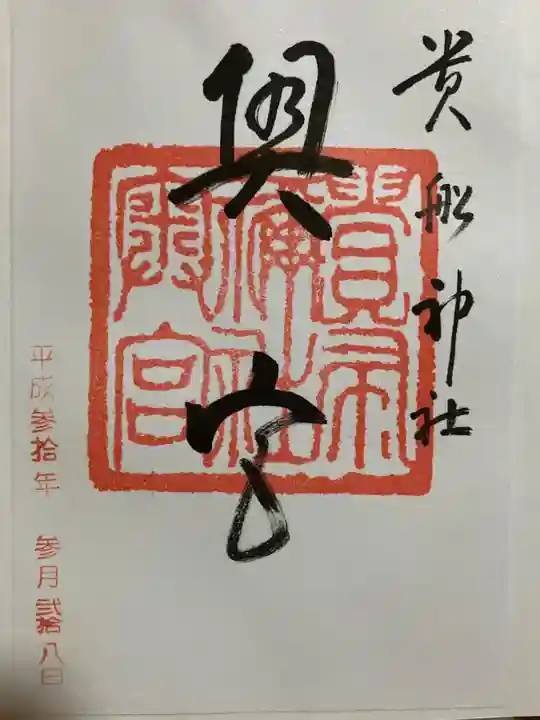 貴船神社
奥宮
平成参拾年 参月弐拾八日